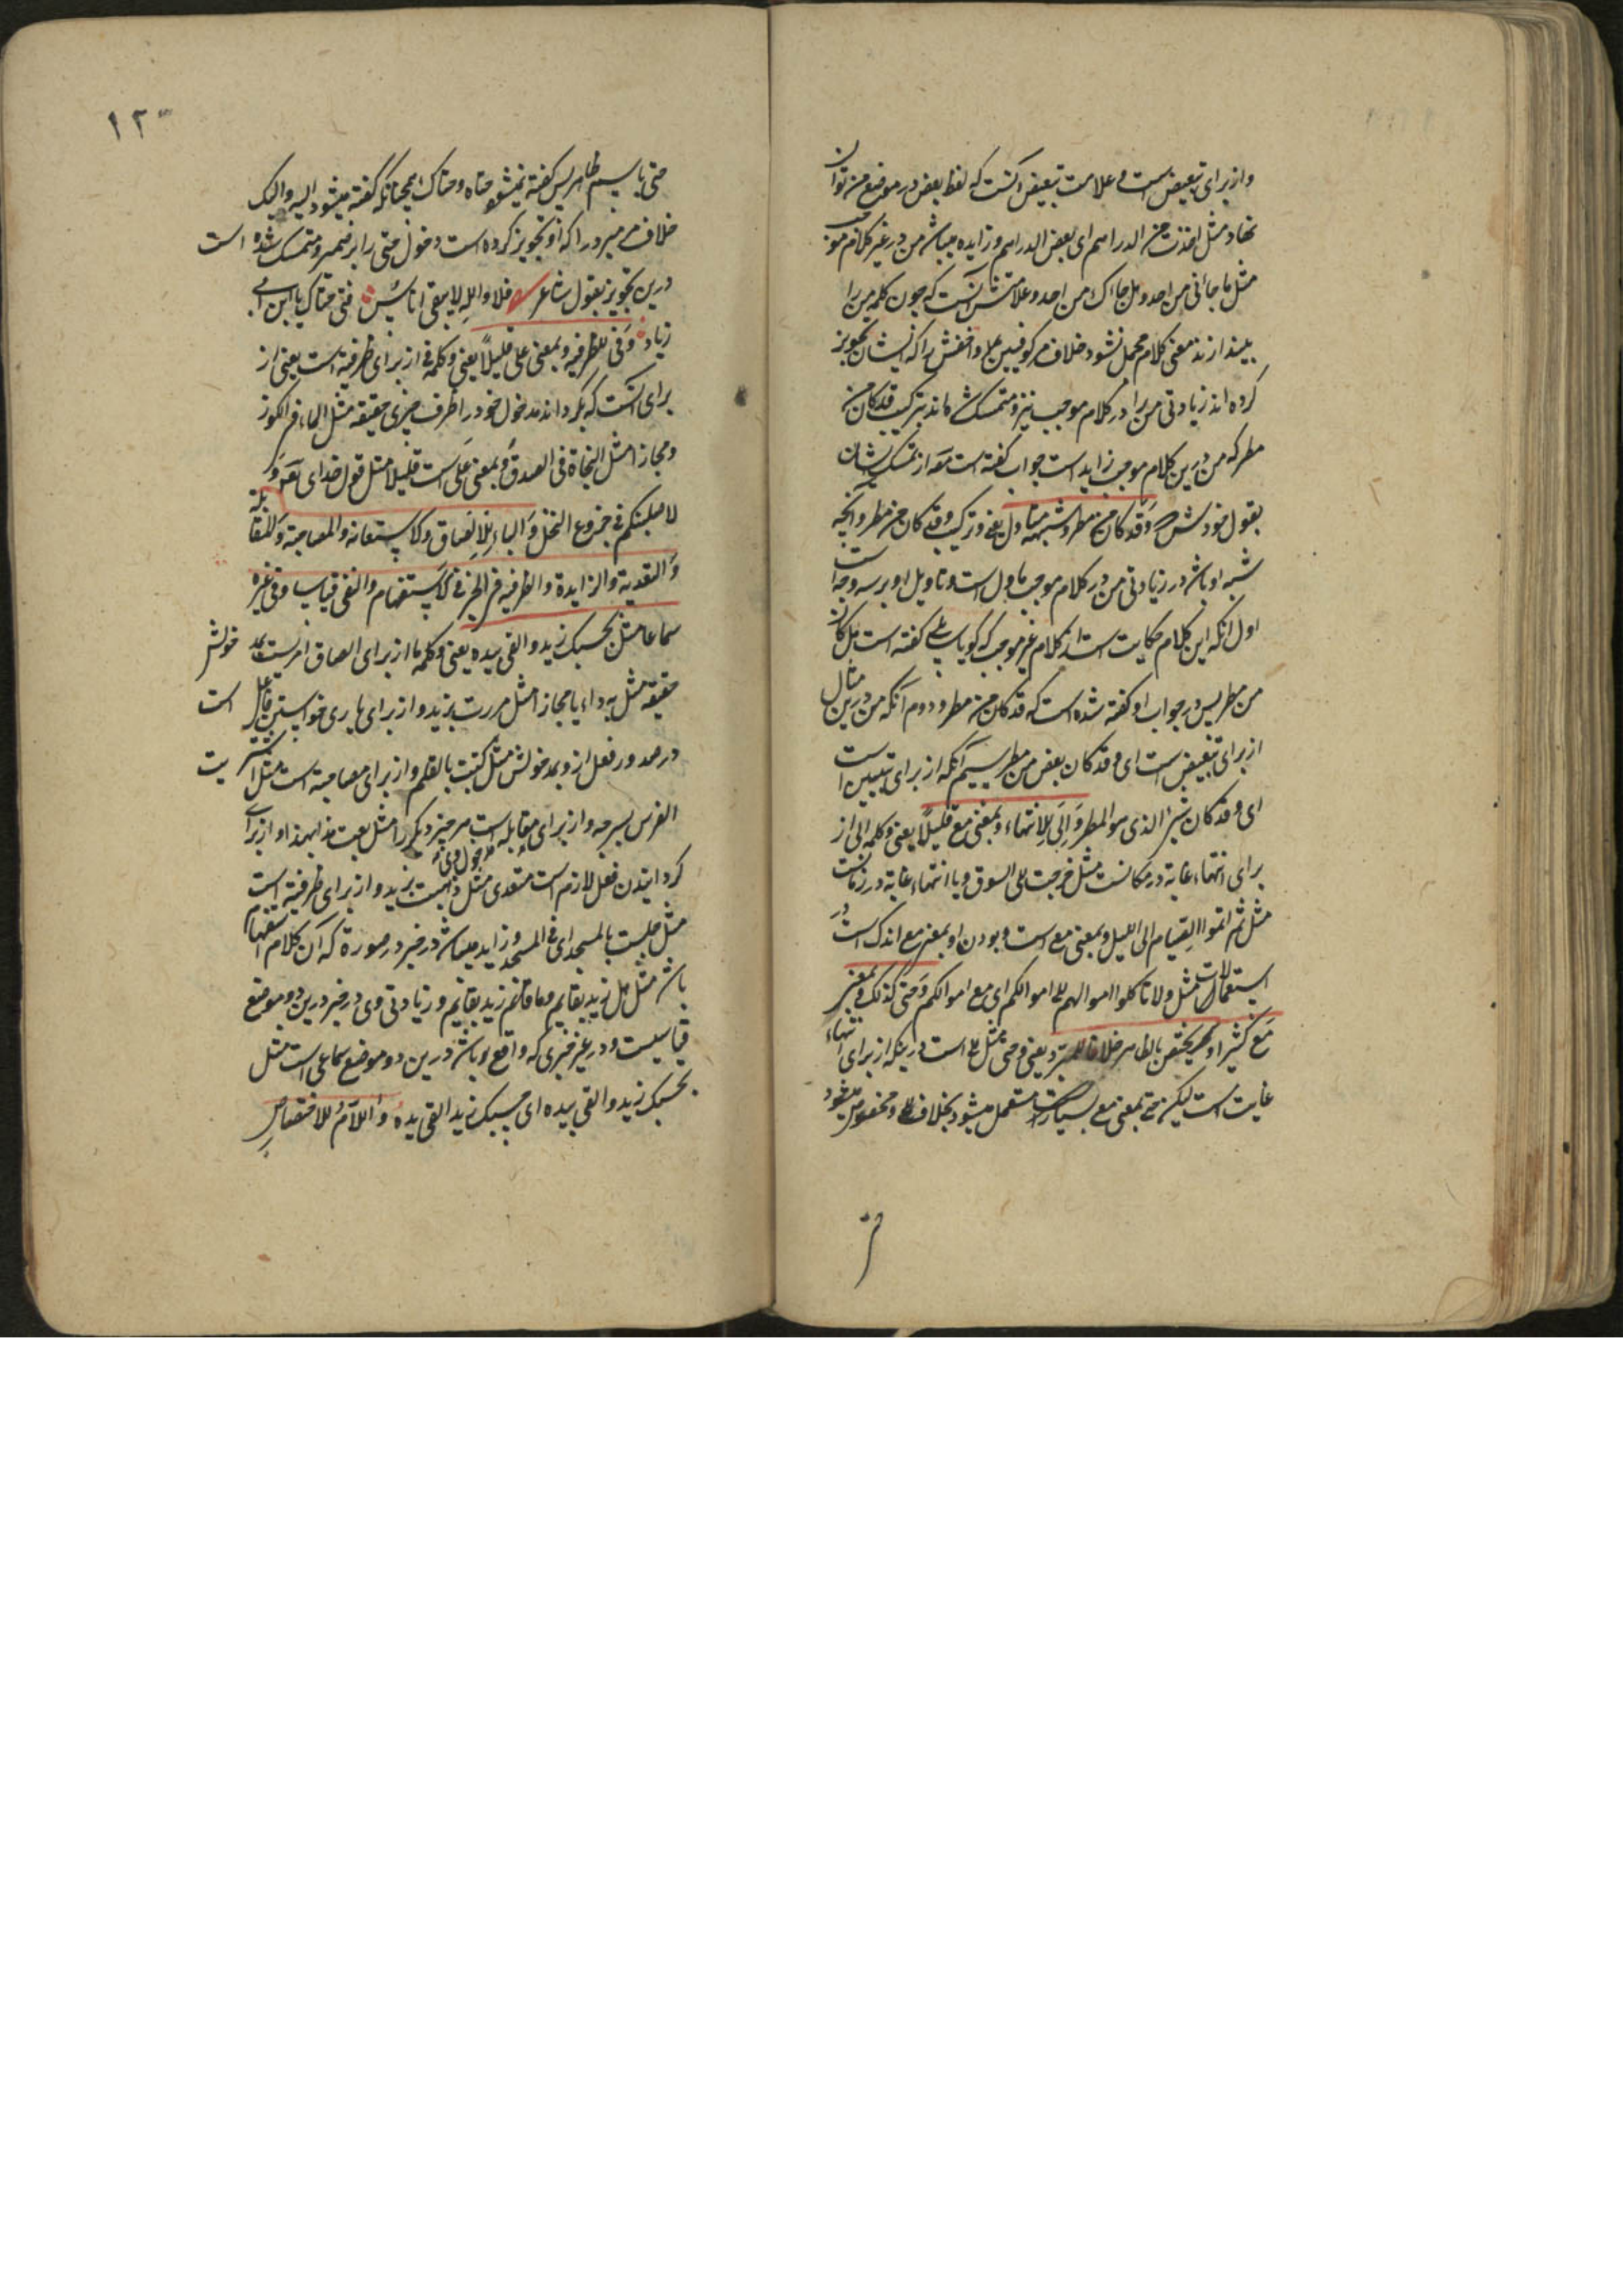 و از برای تبعیض است و علامت تبعیض آنست که لفظ بعض در موضع من توان
نهاد مثل اخذت من الدراهم ای بعض الدراهم و زایده میباشد من در غیر کلام موجب
مثل ما جائنی من احد و هل جاءک من احد و علامتش آنست که چون کلمه من را
بیندازند معنی کلام مخمل نشود خلاف مر کوفیین را و اخفش را که ایشان تجویز
کرده اند زیادتی من را در کلام موجب نیز و متمسک شده اند بترکیب قد کان من
مطر که من درین کلام موجب زاید است جواب گفته است مص از تمسک ایشان
بقول خودش و قد کان من مطر و شبهه متاول یعنی و ترکیب قد کان من مطر و آنچه
شبه او باشد در زیادتی من در کلام موجب ماول است و تاویل او بر سه وجه است
اول آنکه این کلام حکایت است از کلام غیر موجب که گویا سایلی گفته است هل کان
من مطر پس در جواب او گفته شده است که قد کان من مطر و دوم آنکه من درین مثال
از برای تبعیض است ای و قد کان بعض من مطر سیم آنکه از برای تبیین است
ای و قد کان شئ الذی هو المطر و الی للانتهاء و بمعنی مع قلیلا یعنی و کلمه الی از
برای انتهاء غایة در مکانست مثل خرجت الی السوق و یا انتهاء غایة در زمانست
مثل ثم اتموا الصیام الی اللیل و بمعنی مع است و بودن او بمعنی مع اندک است در
استعمالات مثل و لا تاکلوا اموالهم الی اموالکم ای مع اموالکم و حتی کذلک و بمعنی
مع کثیرا و یختص بالظاهر خلافا للمبرد یعنی و حتی مثل الی است درینکه از برای انتهاء
غایت است لیکن حتی بمعنی مع بسیار مستعمل میشود بخلاف الی و مخصوص میشود
حتی
۱۲۰
حتی باسم ظاهر پس گفته نمیشود حتاه و حتاک همچنانکه گفته میشود الیه و الیک
خلاف مر مبرد را که او تجویز کرده است دخول حتی را بر ضمیر و متمسک شده است
درین تجویز بقول شاعر فلا والله لا یبقی اناس فتی حتاک یا ابن ابی
زیاد و فی للظرفیه و بمعنی علی قلیلا یعنی و کلمه فی از برای ظرفیة است یعنی از
برای آنست که بگرداند مدخول خود را ظرف چیزی حقیقة مثل الماء فی الکوز
و مجازا مثل النجاة فی الصدق و بمعنی علی است قلیلا مثل قول خدای تعه و
لاصلبنکم فی جذوع النخل و الباء للالصاق و الاستعانه و المصاحبة و المقابلة
و التعدیة و الزایدة و الظرفیه فی الخبر فی الاستفهام و النفی قیاسا و فی غیره
سماعا مثل بحسبک زید و القی بیده یعنی و کلمه با از برای الصاق امریست بمدخولش
حقیقة مثل به داء یا مجازا مثل مررت بزید و از برای یاری خواستن فاعل است
در صدور فعل ازو بمدخولش مثل کتبت بالقلم و از برای مصاحبة است مثل اشتریت
الفرس بسرجه و از برای مقابله است مر چیز دیگر را مثل بعت هذا بهذا و از برای
کردانیدن فعل لازم است متعدی مثل ذهبت بزید و از برای ظرفیة است
مثل جلست بالمسجد ای فی المسجد و زاید میباشد در خبر در صورة که آن کلام استفهام
باشد مثل هل زید بقایم و ما قائم زید بقایم و زیادتی وی در خبر درین دو موضع
قیاسیست و در غیر خبری که واقع باشد درین دو موضع سماعی است مثل
بحسبک زید و القی بیده ای حسبک زید القی یده و اللام للاختصاص